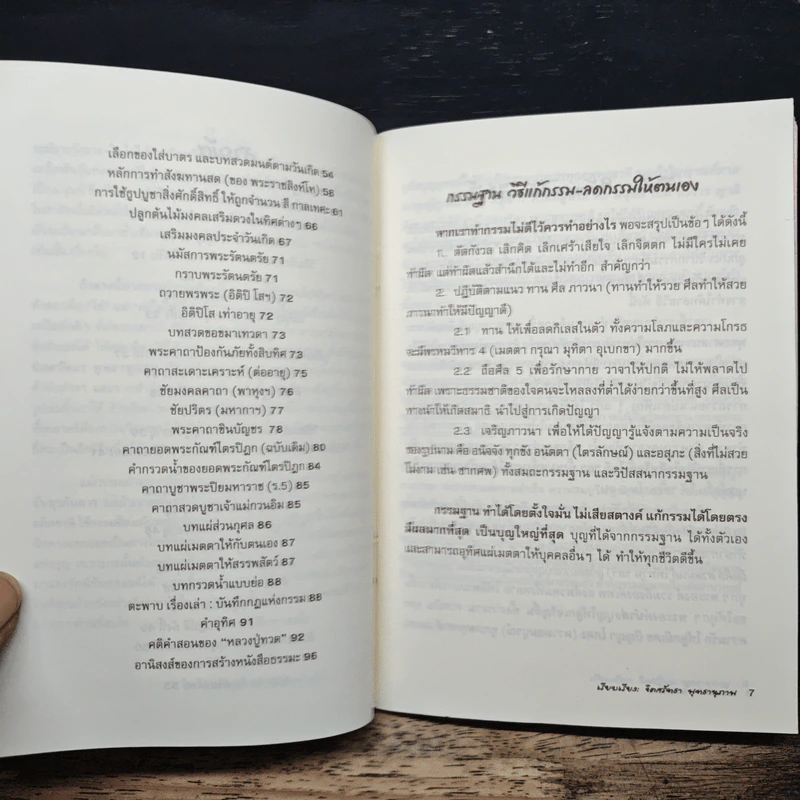 เลือกของใส่บาตร และบทสวดมนต์ตามวันเกิด 54
หลักการทำสังฆทานสด (ของ พระราชสิงห์โท) 58
การใช้ธูปบูชาสิ่งศักดิ์สิทธิ์ ให้ถูกจำนวน สี กาลเทศะ 61
ปลูกต้นไม้มงคลเสริมดวงในทิศต่างๆ 66
เสริมมงคลประจำวันเกิด 67
นมัสการพระรัตนตรัย 71
กราบพระรัตนตรัย 71
ถวายพรพระ (อิติปิ โสฯ) 72
อิติปิโส เท่าอายุ 72
บทสวดขอขมาเทวดา 73
พระคาถาป้องกันภัยทั้งสิบทิศ 73
คาถาสะเดาะเคราะห์ (ต่ออายุ) 75
ชัยมงคลคาถา (พาหุงฯ) 76
ชัยปริตร (มหากาฯ) 77
พระคาถาชินบัญชร 78
คาถายอดพระกัณฑ์ไตรปิฎก (ฉบับเดิม) 80
คำกรวดน้ำของยอดพระกัณฑ์ไตรปิฎก 84
คาถาบูชาพระปิยมหาราช (ร.5) 85
คาถาสวดบูชาเจ้าแม่กวนอิม 85
บทแผ่ส่วนกุศล 86
บทแผ่เมตตาให้กับตนเอง 87
บทแผ่เมตตาให้สรรพสัตว์ 87
บทกรวดน้ำแบบย่อ 88
ตะพาบ เรื่องเล่า : บันทึกกฎแห่งกรรม 88
คำอุทิศ 91
คติคำสอนของ "หลวงปู่ทวด" 92
อานิสงส์ของการสร้างหนังสือธรรมะ 95
กรรมฐาน วิธีแก้กรรม-ลดกรรมให้ตนเอง
หากเราทำกรรมไม่ดีไว้ควรทำอย่างไร พอจะสรุปเป็นข้อๆ ได้ดังนี้
1. ตัดกังวล เลิกคิด เลิกเศร้าเสียใจ เลิกจิตตก ไม่มีใครไม่เคย
ทำผิด แต่ทำผิดแล้วสำนึกได้และไม่ทำอีก สำคัญกว่า
2. ปฏิบัติตามแนว ทาน ศีล ภาวนา (ทานทำให้รวย ศีลทำให้สวย
ภาวนาทำให้มีปัญญาดี)
2.1 ทาน ให้เพื่อลดกิเลสในตัว ทั้งความโลภและความโกรธ
จะมีพรหมวิหาร 4 (เมตตา กรุณา มุทิตา อุเบกขา) มากขึ้น
2.2 ถือศีล 5 เพื่อรักษากาย วาจาให้ปกติ ไม่ให้พลาดไป
ทำผิด เพราะธรรมชาติของใจคนจะไหลลงที่ต่ำได้ง่ายกว่าขึ้นที่สูง ศีลเป็น
ทางนำให้เกิดสมาธิ นำไปสู่การเกิดปัญญา
2.3 เจริญภาวนา เพื่อให้ได้ปัญญารู้แจ้งตามความเป็นจริง
ของรูปนาม คือ อนิจจัง ทุกขัง อนัตตา (ไตรลักษณ์) และอสุภะ (สิ่งที่ไม่สวย
ไม่งาม เช่น ซากศพ) ทั้งสมถะกรรมฐาน และวิปัสสนากรรมฐาน
กรรมฐาน ทำได้โดยตั้งใจมั่น ไม่เสียสตางค์ แก้กรรมได้โดยตรง
มีผลมากที่สุด เป็นบุญใหญ่ที่สุด บุญที่ได้จากกรรมฐาน ได้ทั้งตัวเอง
และสามารถอุทิศแผ่เมตตาให้บุคคลอื่นๆ ได้ ทำให้ทุกชีวิตดีขึ้น
เรียบเรียง: จิตตวัชรา พุทธานุภาพ 7